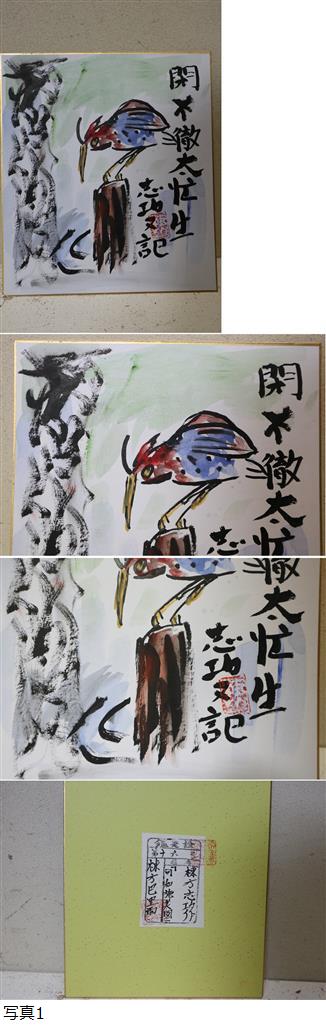 閑不徹太忙生
志功又記
閑不徹太忙
志
徹太忙生
志功又記
棟方志功
写真1